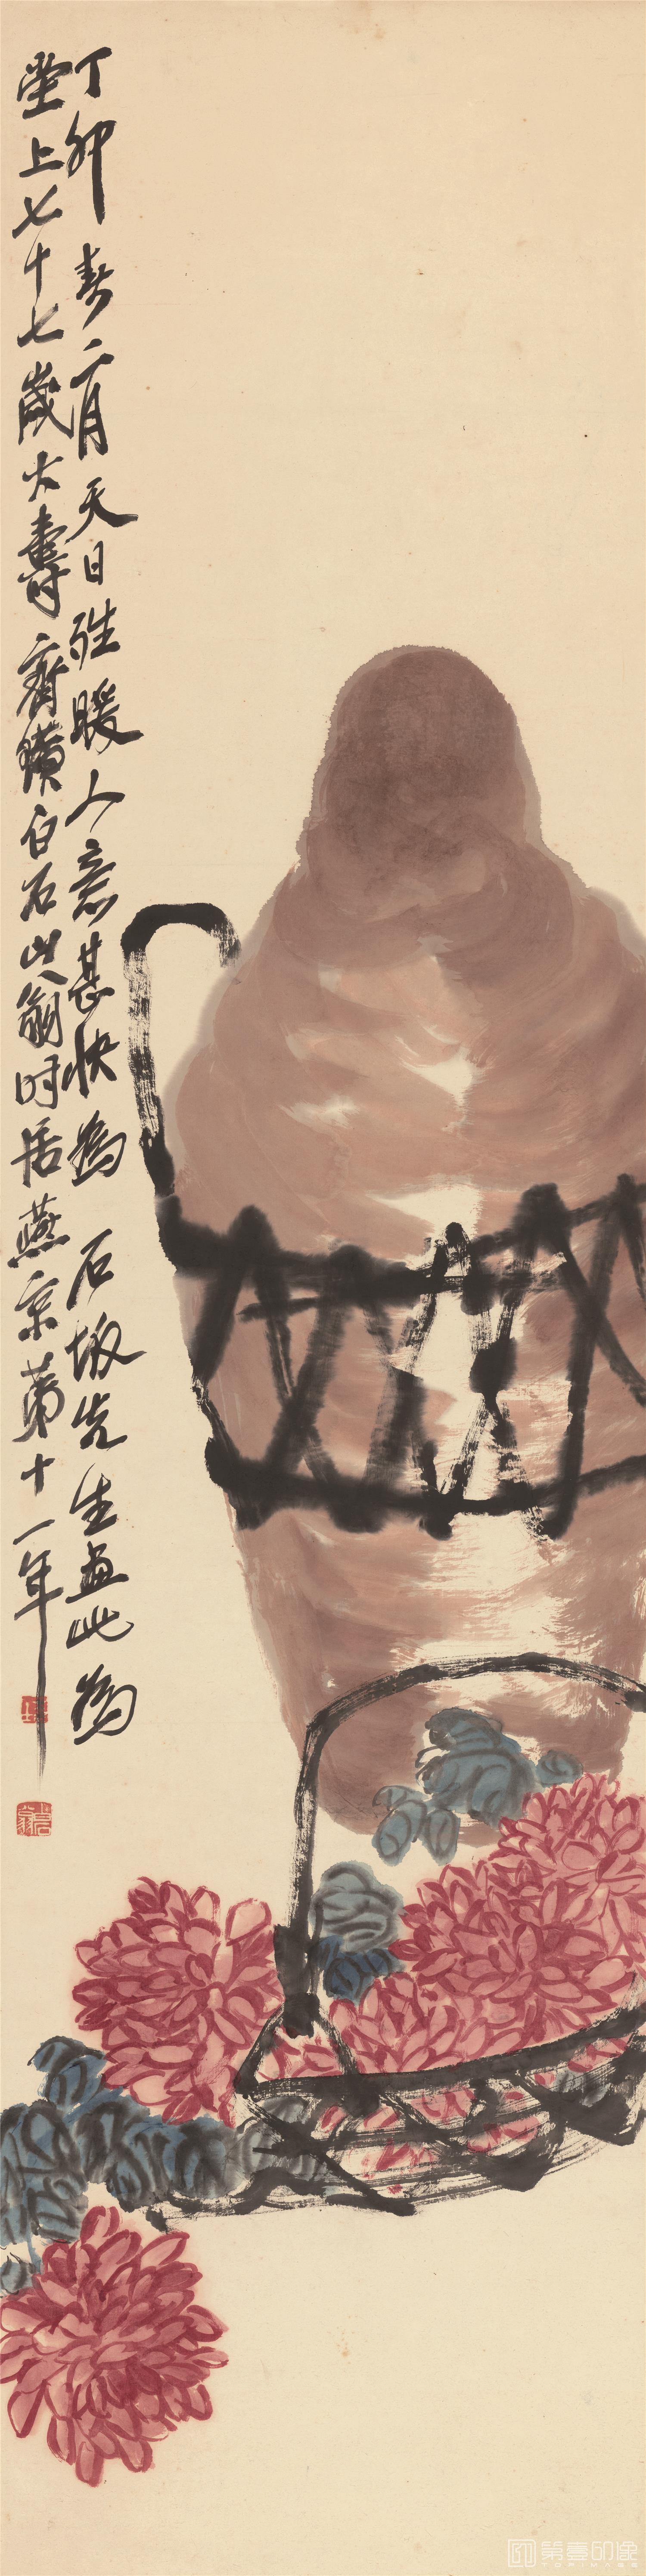 丁卯春二月天日暖人意甚快為 石坂先生畫此為
堂上七十七歲大壽齊璜白石山翁時居燕京第十一年
白石翁
第壹印像
TOPIMAGE